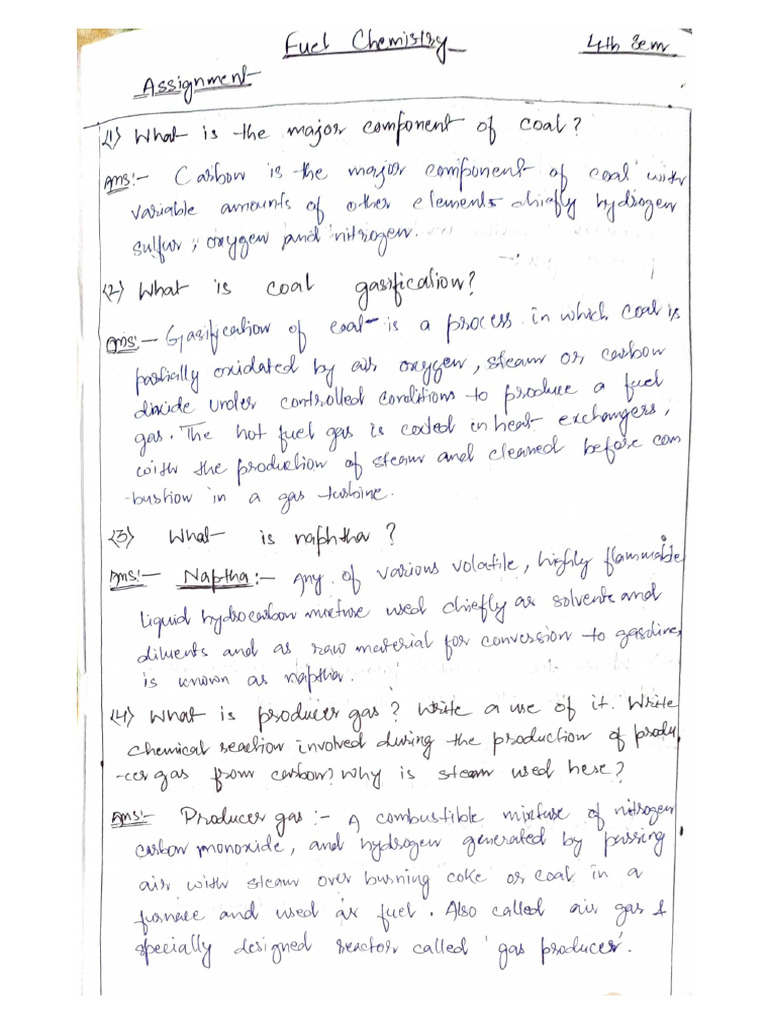 Fuel Chemistry 4th Sem
Assignment
<1> What is the major component of coal?
Ans:- Carbon is the major component of coal with
variable amounts of other elements chiefly hydrogen
sulfur, oxygen and nitrogen.
<2> What is coal gasification?
Ans:- Gasification of coal is a process in which coal is
partially oxidated by air oxygen, steam or carbon
dioxide under controlled conditions to produce a fuel
gas. The hot fuel gas is cooled in heat exchangers,
with the production of steam and cleaned before com
-bustion in a gas turbine.
<3> What is naphtha?
Ans:- Naptha:- Any of various volatile, highly flammable
liquid hydrocarbon mixture used chiefly as solvents and
diluents and as raw material for conversion to gasoline,
is known as naptha.
<4> What is producer gas? Write a use of it. Write
chemical reaction involved during the production of produ
-cer gas from carbon? Why is steam used here?
Ans:- Producer gas:- A combustible mixture of nitrogen
carbon monoxide, and hydrogen generated by passing
air with steam over burning coke or coal in a
furnace and used as fuel. Also called air gas &
specially designed reactor called 'gas producer'.